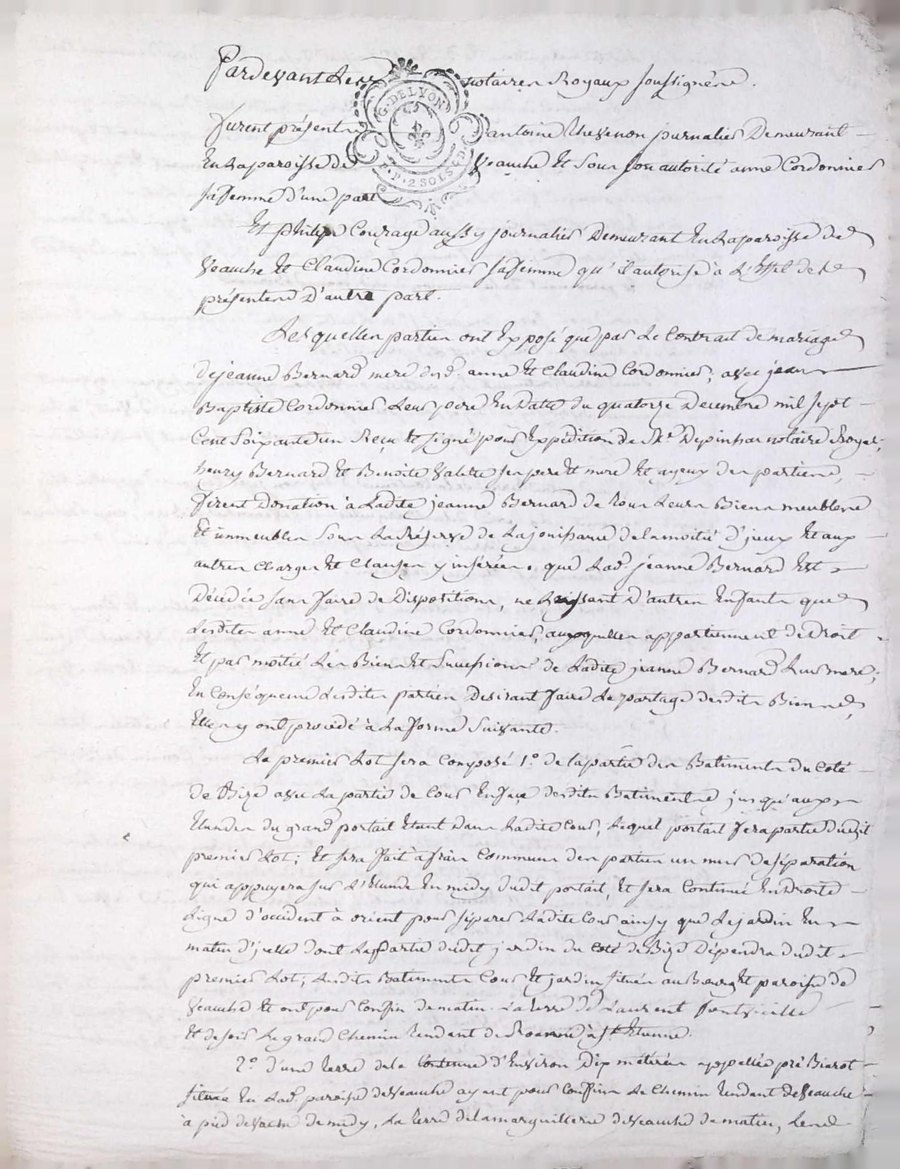 Pardevant Les notaires Royaux soussignés.
G. DE LYON
P. 2 SOLS
furent présents antoine Thevenon journalier Demeurant
En La paroisse de Veauche Et sous son autorité anne Cordonnier
sa femme d'une part
Et philip Courage aussy journalier Demeurant En La paroisse de
Veauche Et Claudine Cordonnier sa femme qu'il autorise à L'effet des
présentes D'autre part.
Lesquelles parties ont Exposé que par Le Contrat de mariage
de jeanne Bernard mere desd. anne Et Claudine Cordonnier, avec jean
Baptiste Cordonnier Leur pere En Datte du quatorze Decembre mil sept
Cent soixante un Reçu Et signé pour Expédition de Me. notaire Royal,
henry Bernard Et Benoite ses pere Et mere Et ayeux des parties,
firent Donation à Ladite jeanne Bernard de tous Leurs Biens meubles
Et immeubles sous La Réserve de La jouissance de la moitié d'jceux Et aux
autres Charges Et Clauses y inserées. que Lad. jeanne Bernard Est
Décédée sans faire de Dispositions, ne Laissant D'autres Enfants que
Lesdites anne Et Claudine Cordonnier, auxquelles appartiennent de droit
Et par moitié Les Biens Et successions de Ladite jeanne Bernard Leur mere;
En Conséquence Lesdites parties Desirant faire Le partage desdits Biens
Elles y ont procédé à La forme suivante.
Le premier Lot sera Composé 1°. de la partie des Batiments du Coté
de Bize avec La partie de Cour En face desdits Batiments jusqu'aux
du grand portail Etant dans Ladite Cour, Lequel portail fera partie dudit
premier Lot; Et sera fait à frais Commun des parties un mur de séparation
qui appuyera sur En midy dudit portail, Et sera Continué En droite
Ligne d'occident à orient pour séparer Ladite Cour ainsy que Le jardin En
matin d'jcelle dont La partie dudit jardin du Coté de Bize Dépendra dudit
premier Lot; Lesdits Batiments Cour Et jardin situés au Bourg Et paroisse de
Veauche Et ont pour Confin de matin La terre de Laurent
Et de soir Le grand Chemin tendant de Roanne à St. Etienne.
2°. d'une terre de la Contenue d'Environ Dix métérées appellée pré
située En Lad. paroisse de Veauche ayant pour Confin Le Chemin tendant de Veauche
à de midy, La terre de la marguillerie de Veauche de matin,